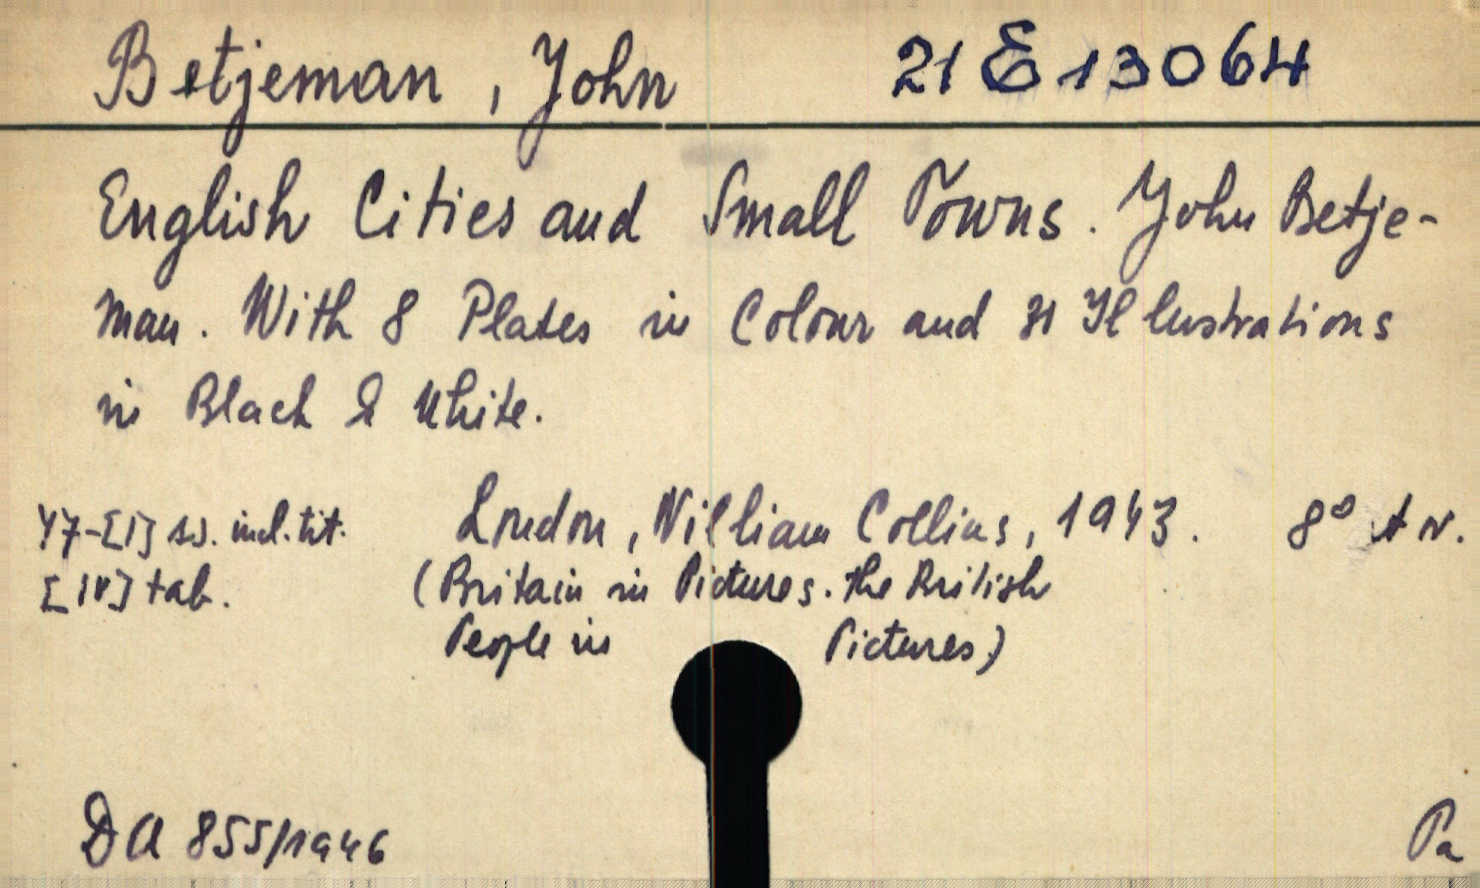 Betjeman, John 21 E 13064
English Cities and Small Towns. John Betje-
man. With 8 Plates in Colour and 31 Illustrations
in Black & White.
47-[1] ss. incl. tit. London, William Collins, 1943. 8°
[IV] tab. (Britain in Pictures. The British
People in Pictures)
DA 855/1946 Pa